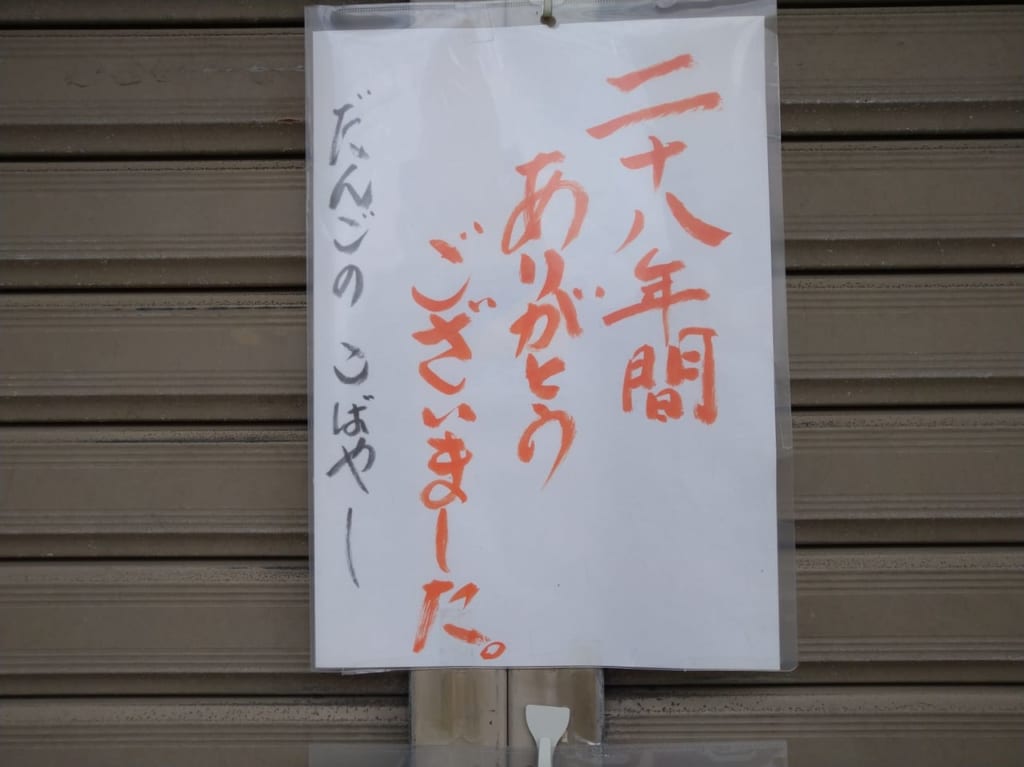 二十八年間
ありがとう
ございました。
だんごの こばやし